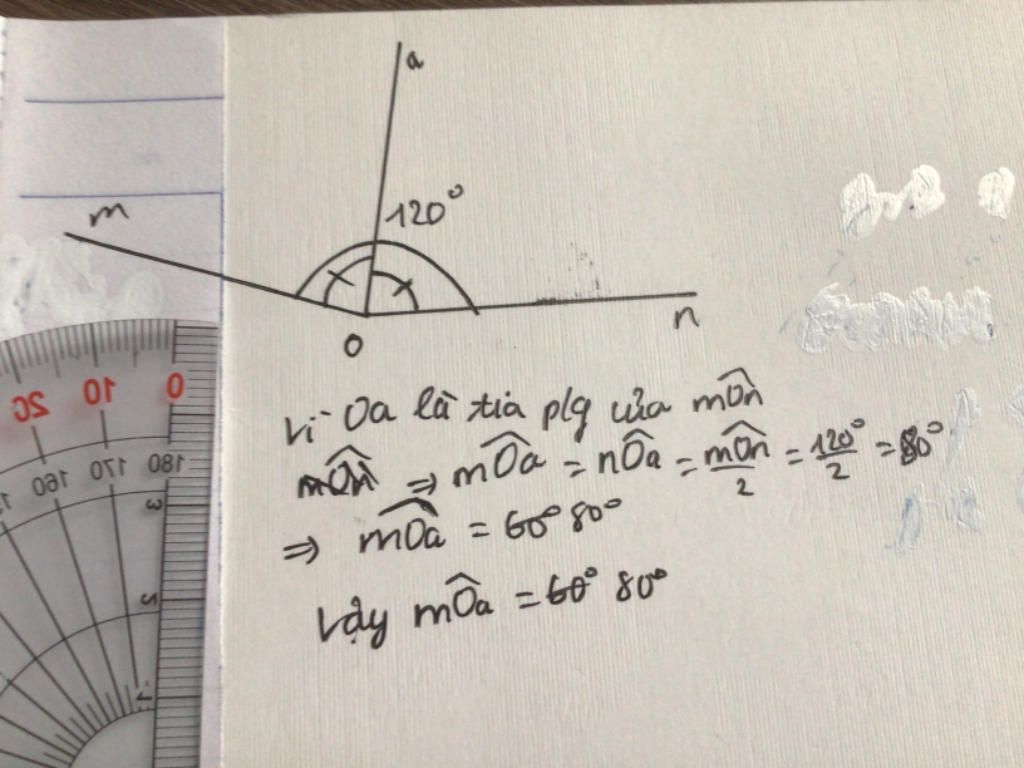 a
120°
m
n
O
Vì Oa là tia plg của mÔn
mÔn ⇒ mÔa = nÔa = mÔn/2 = 120°/2 = 80°
⇒ mÔa = 60° 80°
Vậy mÔa = 60° 80°
0
10
20
180
170
160